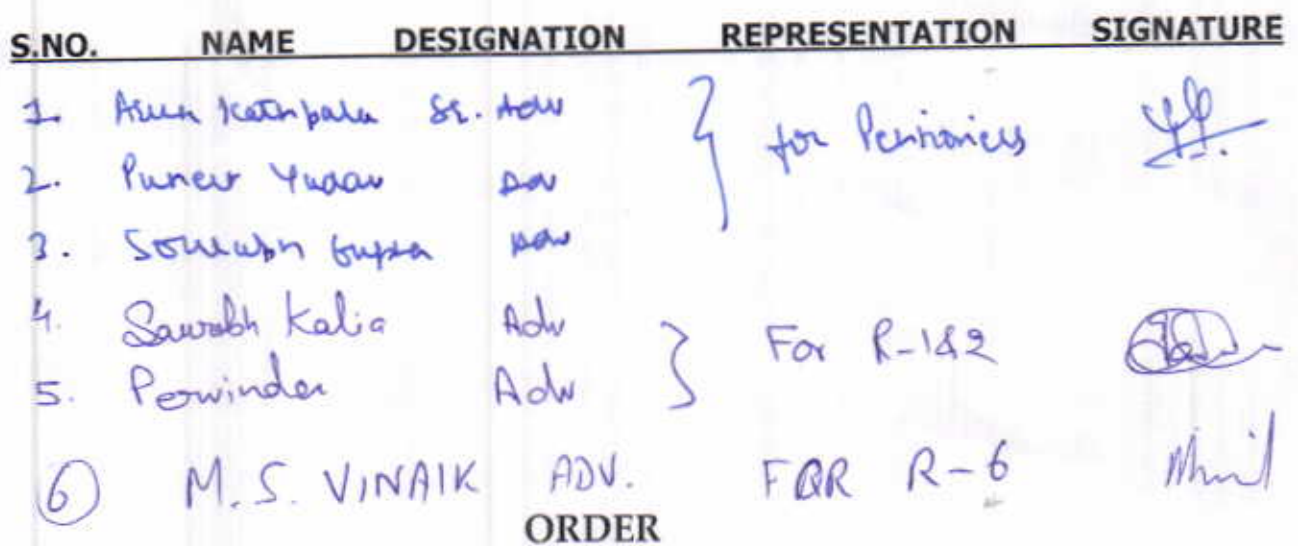 S.NO. NAME DESIGNATION REPRESENTATION SIGNATURE
1. Arun Kathpalia Sr. Adv } for Petitioners
2. Puneet Yadav Adv
3. Gupta Adv
4. Saurabh Kalia Adv } For R-1&2
5. Perwinder Adv
6 M.S. VINAIK ADV. FOR R-6
ORDER